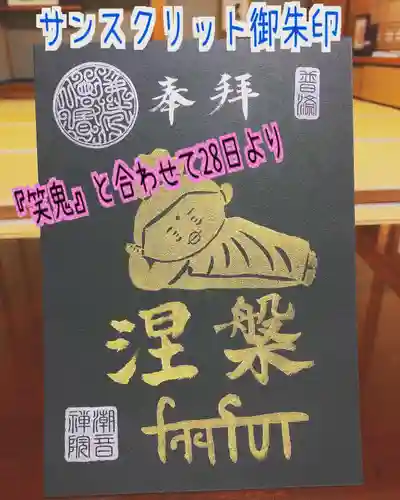 サンスクリット御朱印
奉拝
普濟
『笑鬼』と合わせて28日より
涅槃
潮音禅院
निर्वाण